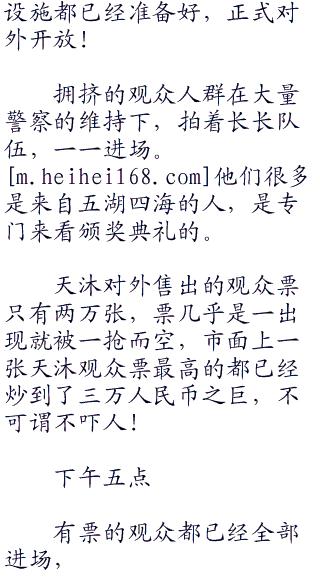 设施都已经准备好，正式对
外开放！
拥挤的观众人群在大量
警察的维持下，拍着长长队
伍，一一进场。
[m.heihei168.com]他们很多
是来自五湖四海的人，是专
门来看颁奖典礼的。
天沐对外售出的观众票
只有两万张，票几乎是一出
现就被一抢而空，市面上一
张天沐观众票最高的都已经
炒到了三万人民币之巨，不
可谓不吓人！
下午五点
有票的观众都已经全部
进场，